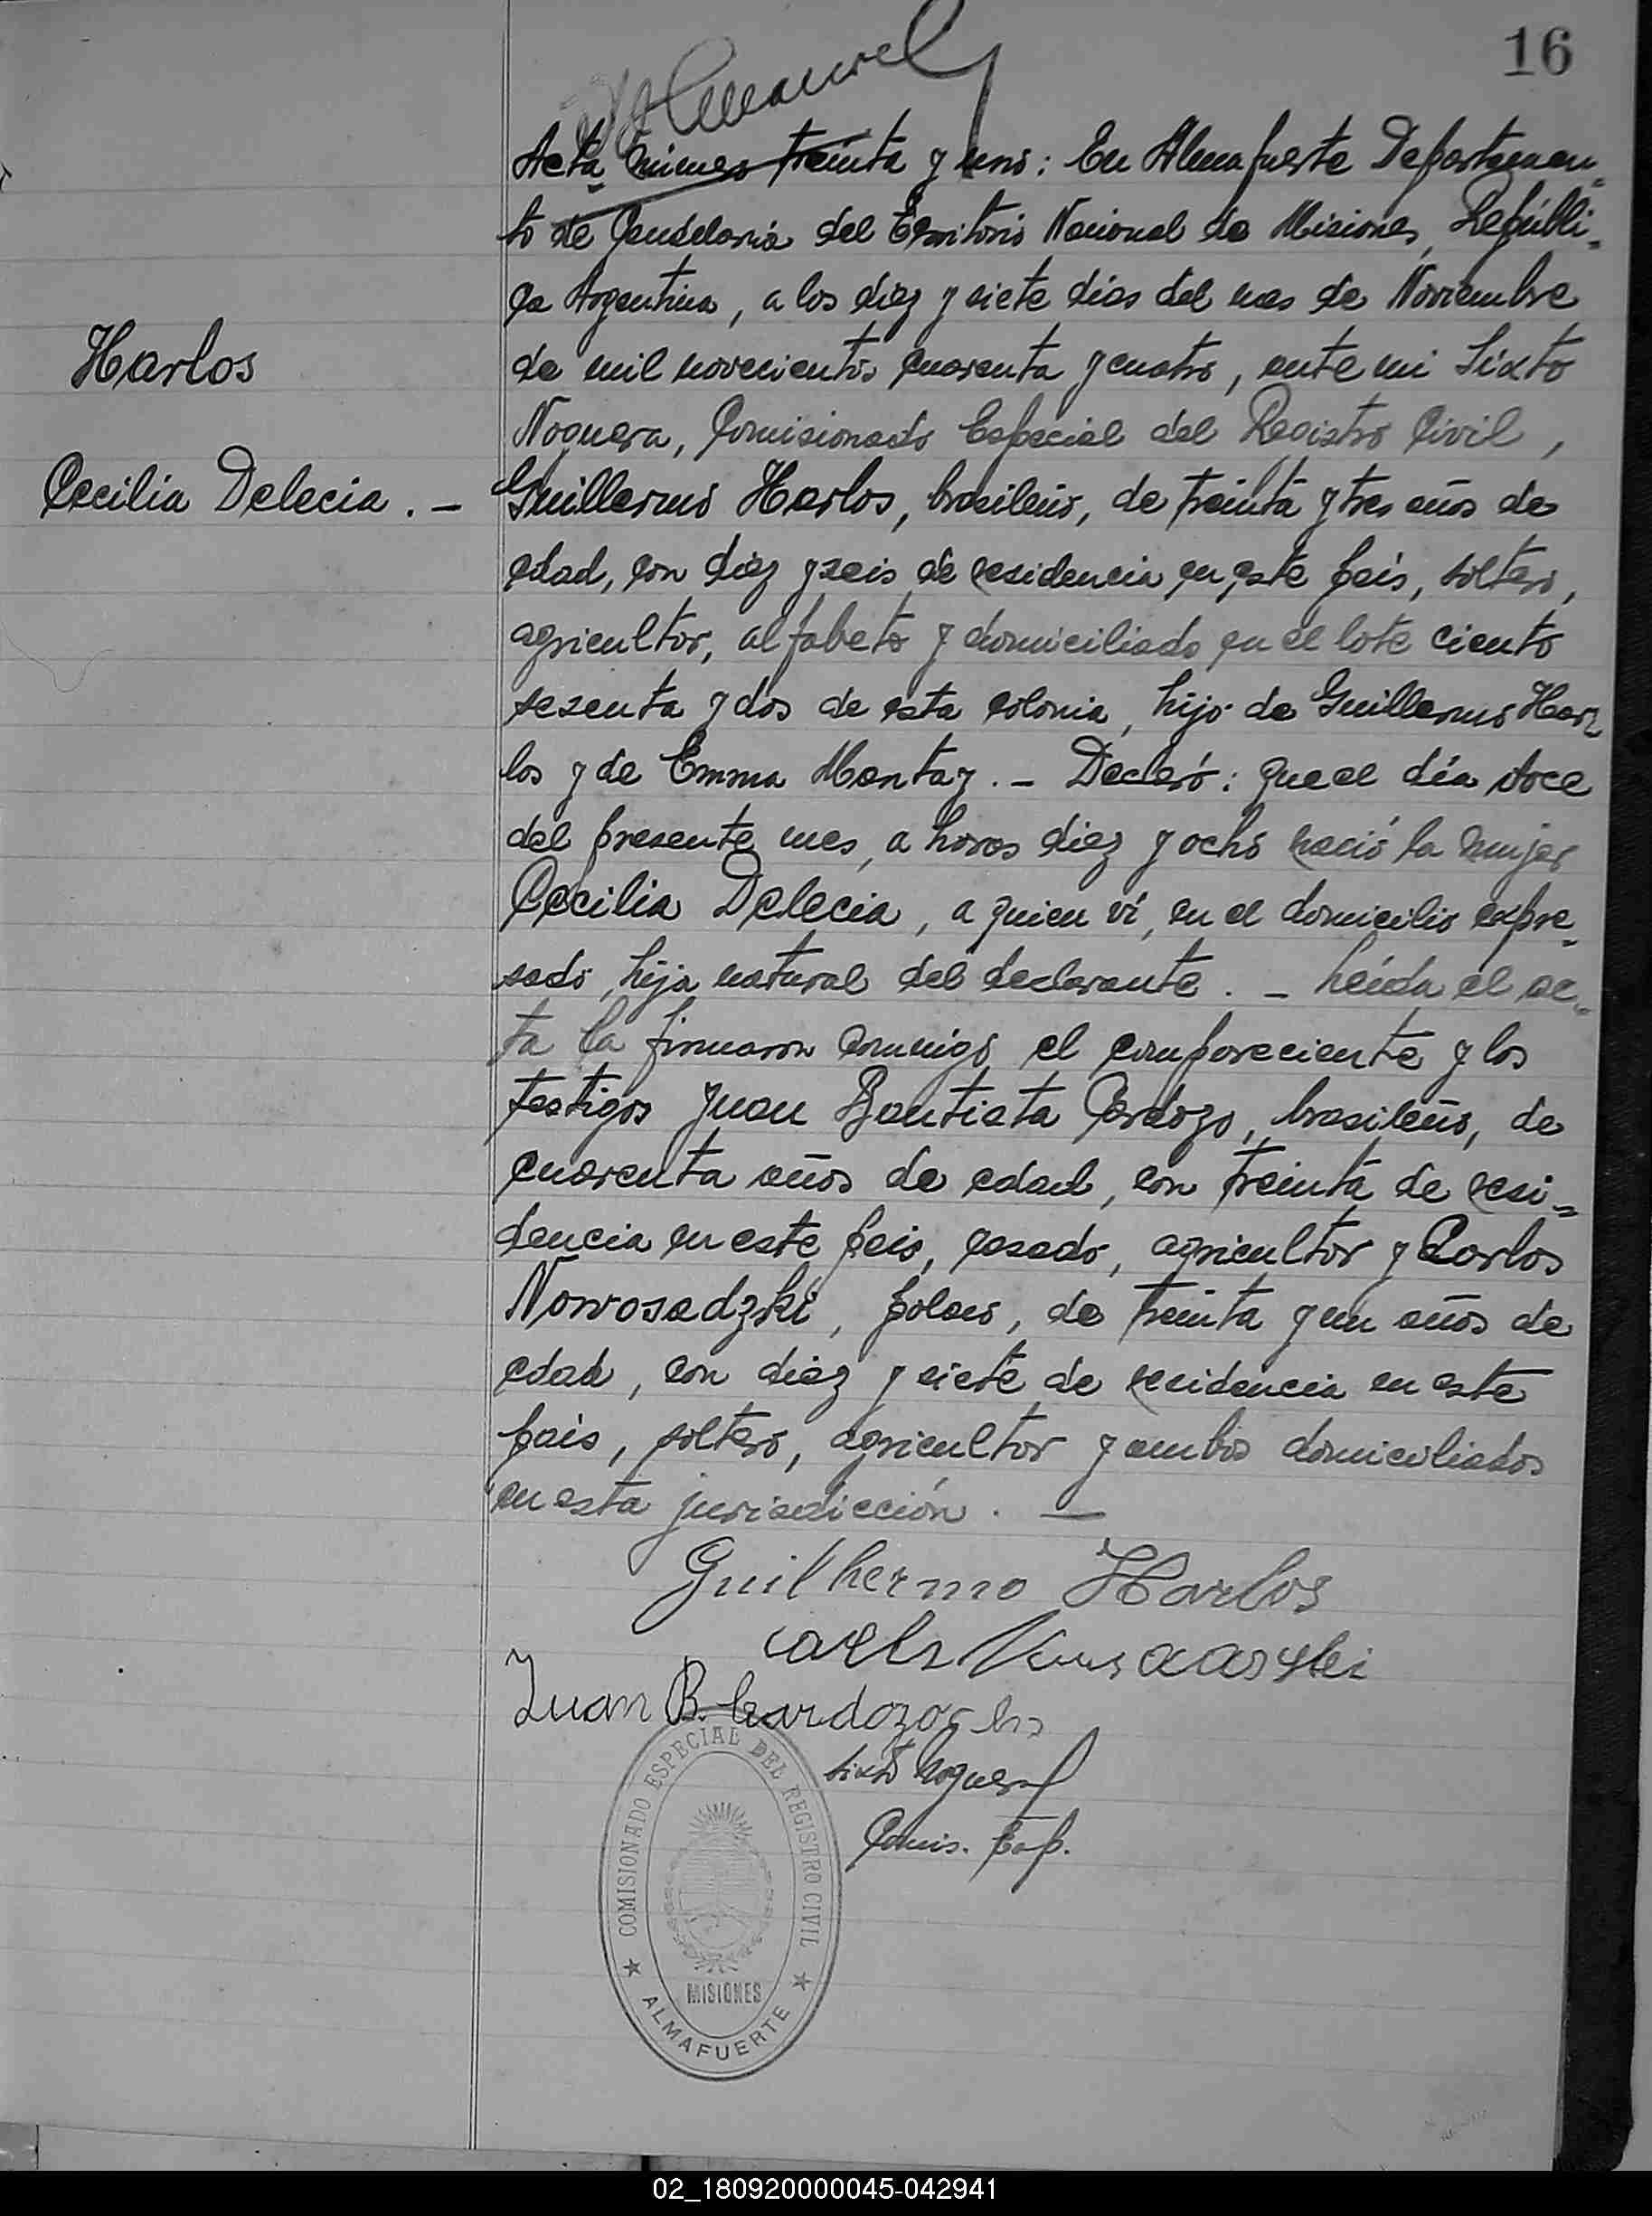 16
Acta número treinta y uno: En Almafuerte Departamen-
to de Candelaria del Territorio Nacional de Misiones, Repúbli-
ca Argentina, a los diez y siete días del mes de Noviembre
Harlos
de mil novecientos cuarenta y cuatro, ante mi Sixto
Noguera, Comisionado Especial del Registro Civil,
Cecilia Delecia. -
Guillermo Harlos, brasileño, de treinta y tres años de
edad, con diez y seis de residencia en este país, soltero,
agricultor, alfabeto y domiciliado en el lote ciento
sesenta y dos de esta colonia, hijo de Guillermo Har
los y de Emma Montaz. - Declaró: Que el día doce
del presente mes, a horas diez y ocho nació la mujer
Cecilia Delecia, a quien ví, en el domicilio expre-
sado, hija natural del declarante. - Leída el ac-
ta la firmaron conmigo el compareciente y los
testigos Juan Bautista Cardozo, brasileño, de
cuarenta años de edad, con treinta de resi-
dencia en este país, casado, agricultor y Carlos
Nowosadzki, polaco, de treinta y un años de
edad, con diez y siete de residencia en este
país, soltero, agricultor y ambos domiciliados
en esta jurisdicción. -
Guilhermo Harlos
Juan B. Cardozo
Sixto Noguera
Comis. Esp.
COMISIONADO ESPECIAL DEL REGISTRO CIVIL
MISIONES
★ ALMAFUERTE ★
02_180920000045-042941